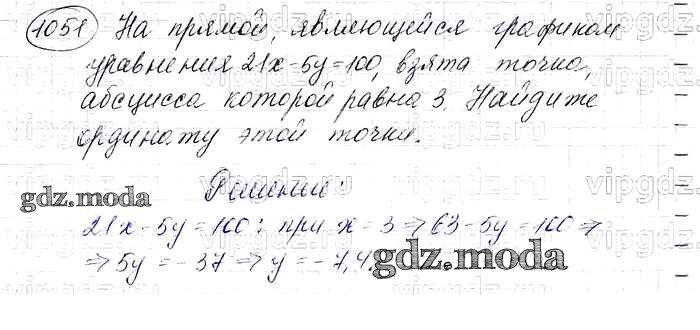 1051 На прямой, являющейся графиком
уравнения 21x-5y=100, взята точка,
абсцисса которой равна 3. Найдите
ординату этой точки.
Решение:
gdz.moda
21x-5y=100: при x=3 ⇒ 63-5y=100 ⇒
⇒ 5y=-37 ⇒ y=-7,4.
gdz.moda